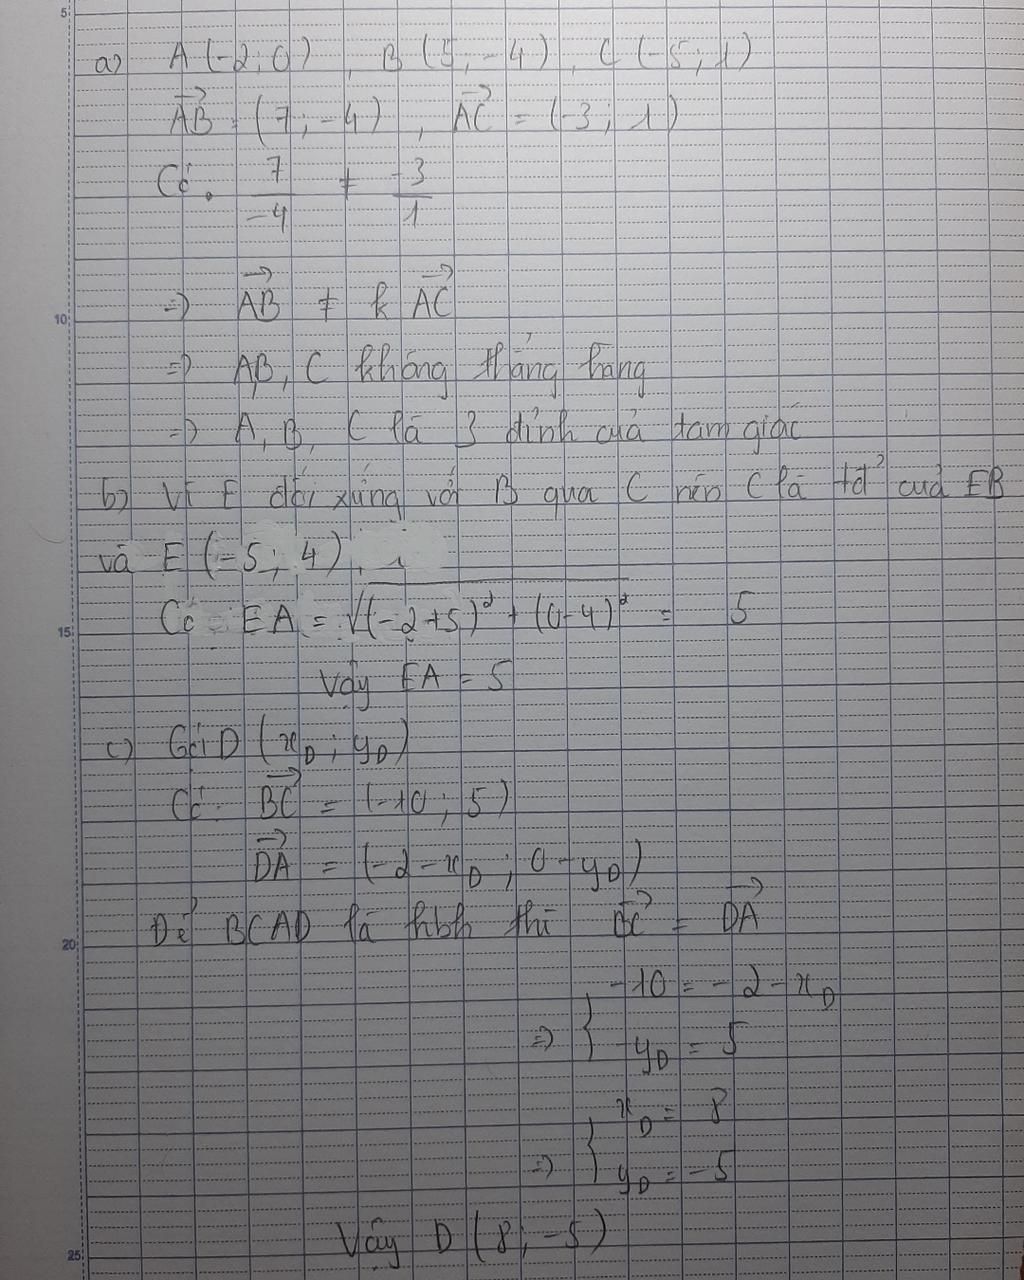 5
a) A (-2; 0), B (5; -4), C (-5; 1)
AB = (7; -4), AC = (-3; 1)
Có. 7/-4 ≠ -3/1
=> AB ≠ k AC
10
=> A,B, C không thẳng hàng
=> A, B, C là 3 đỉnh của tam giác
b) Vì E đối xứng với B qua C nên C là tđ của EB
và E (-5; 4).
15
Có EA = √(-2+5)² + (0-4)² = 5
Vậy EA = 5
c) Gọi D (x_D; y_D)
Có: BC = (-10; 5)
DA = (-2-x_D; 0-y_D)
20
Để BCAD là hbh thì BC = DA
=> { -10 = -2 - x_D
-y_D = 5
=> { x_D = 8
y_D = -5
25
Vậy D (8; -5)